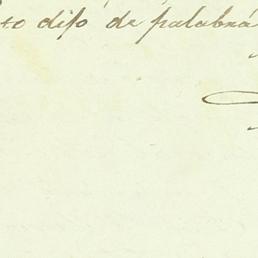 to dijo de palabra